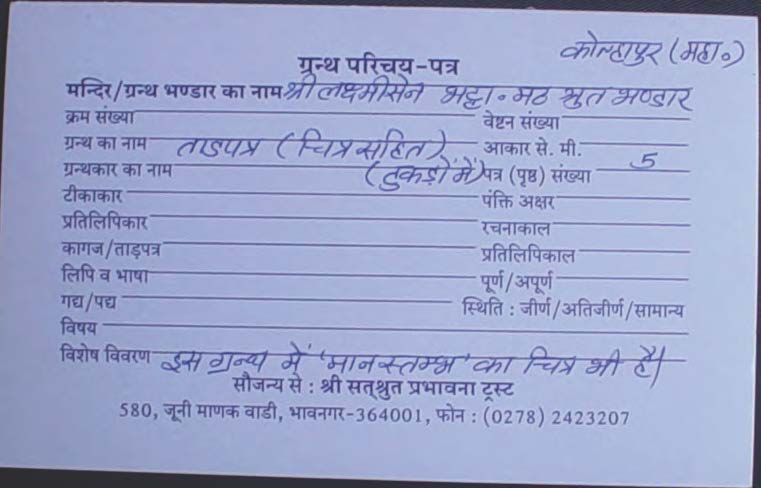 कोल्हापुर (महा०)
ग्रन्थ परिचय-पत्र
मन्दिर/ग्रन्थ भण्डार का नाम श्री लक्ष्मीसेन भट्टा० मठ श्रुत भण्डार
क्रम संख्या वेष्टन संख्या
ग्रन्थ का नाम ताडपत्र (चित्र सहित) आकार से. मी.
ग्रन्थकार का नाम (टुकड़ों में) पत्र (पृष्ठ) संख्या 5
टीकाकार पंक्ति अक्षर
प्रतिलिपिकार रचनाकाल
कागज/ताड़पत्र प्रतिलिपिकाल
लिपि व भाषा पूर्ण/अपूर्ण
गद्य/पद्य स्थिति : जीर्ण/अतिजीर्ण/सामान्य
विषय
विशेष विवरण इस ग्रन्थ में 'मानस्तम्भ' का चित्र भी है।
सौजन्य से : श्री सत्श्रुत प्रभावना ट्रस्ट
580, जूनी माणक वाडी, भावनगर-364001, फोन : (0278) 2423207